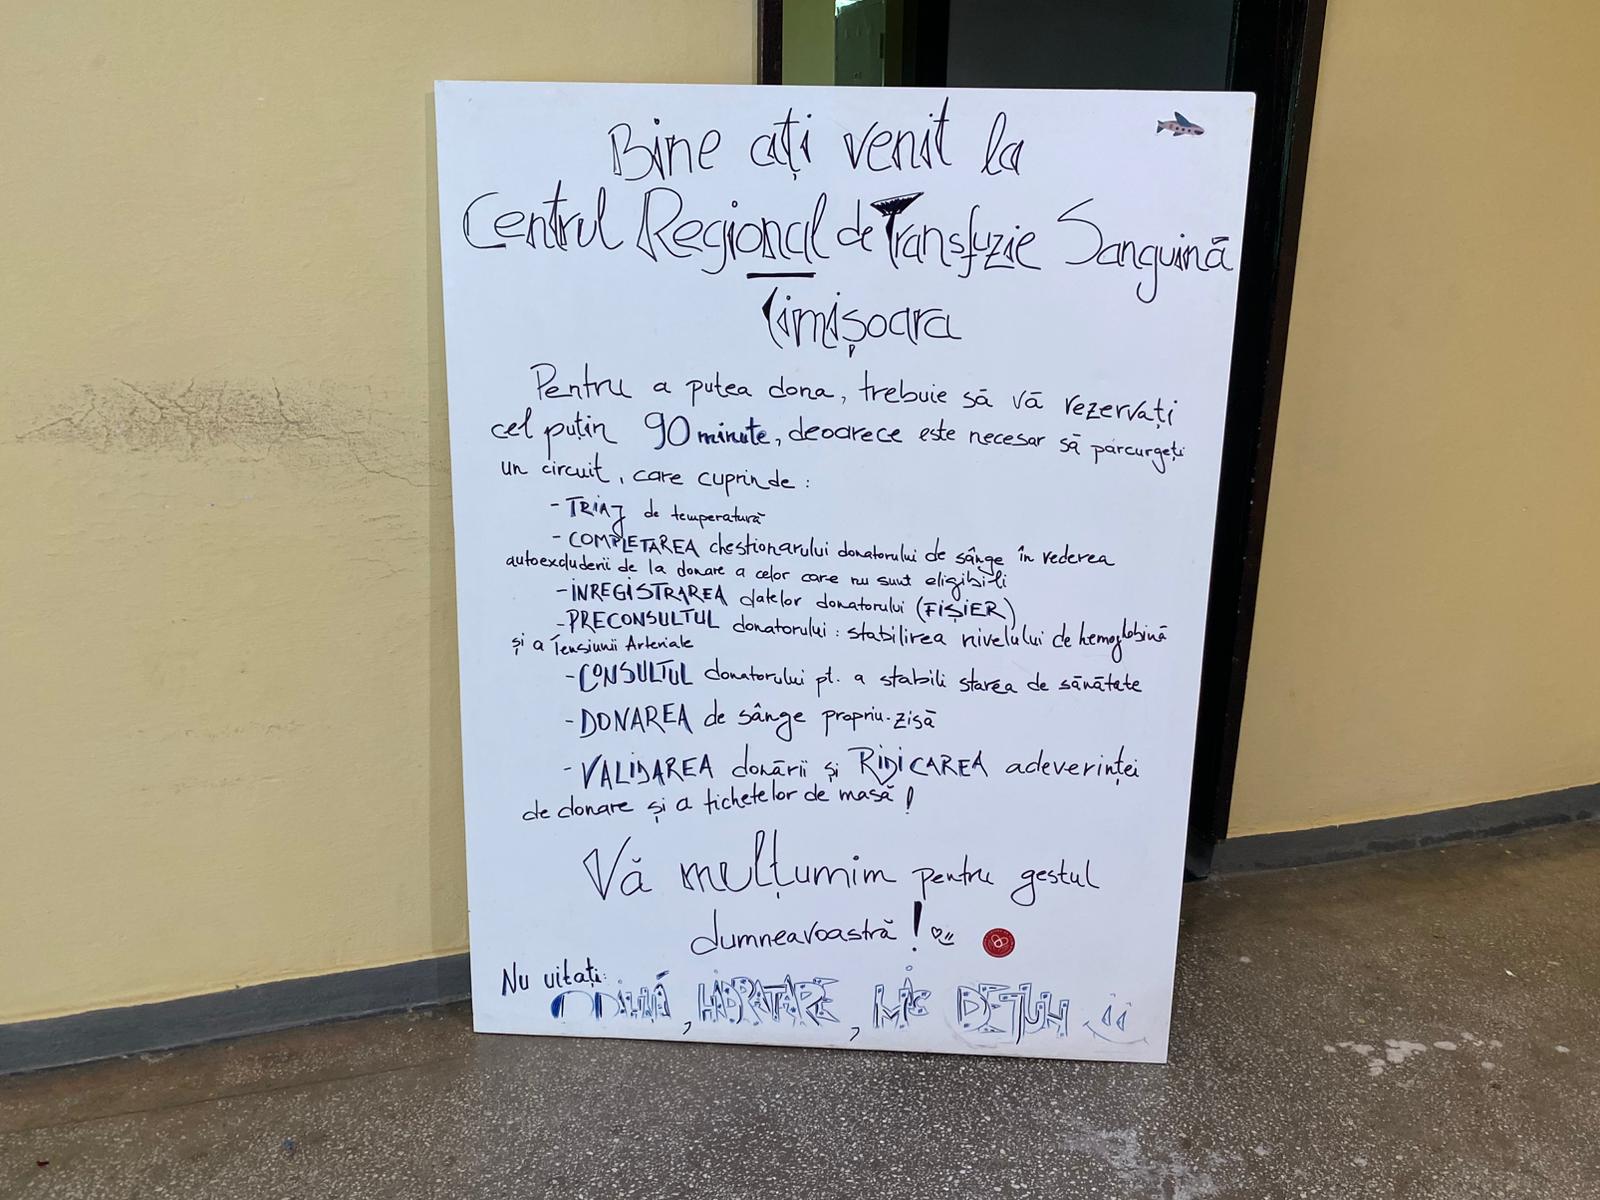 Bine ați venit la
Centrul Regional de Transfuzie Sanguină
Timișoara
Pentru a putea dona, trebuie să vă rezervați
cel puțin 90 minute, deoarece este necesar să parcurgeți
un circuit, care cuprinde:
- TRIAJ de temperatură
- COMPLETAREA chestionarului donatorului de sânge în vederea
autoexcluderii de la donare a celor care nu sunt eligibili
- INREGISTRAREA datelor donatorului (FIȘIER)
- PRECONSULTUL donatorului: stabilirea nivelului de hemoglobină
și a Tensiunii Arteriale
- CONSULTUL donatorului pt. a stabili starea de sănătate
- DONAREA de sânge propriu-zisă
- VALIDAREA donării și RIDICAREA adeverinței
de donare și a tichetelor de masă!
Vă mulțumim pentru gestul
dumneavoastră!
Nu uitați:
ODIHNĂ, HIDRATARE, MIC DEJUN